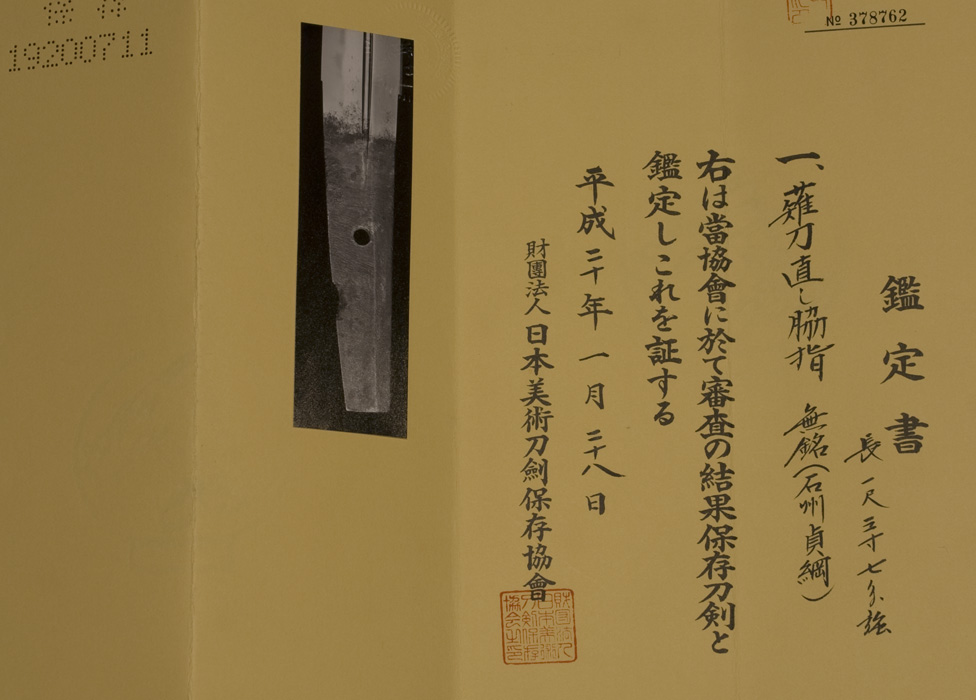 № 378762
鑑定書
長一尺三寸七分強
一、薙刀直し脇指 無銘(石州貞綱)
右は當協會に於て審査の結果保存刀剣と
鑑定しこれを証する
平成二十年一月二十八日
財團法人日本美術刀劍保存協會
19200711